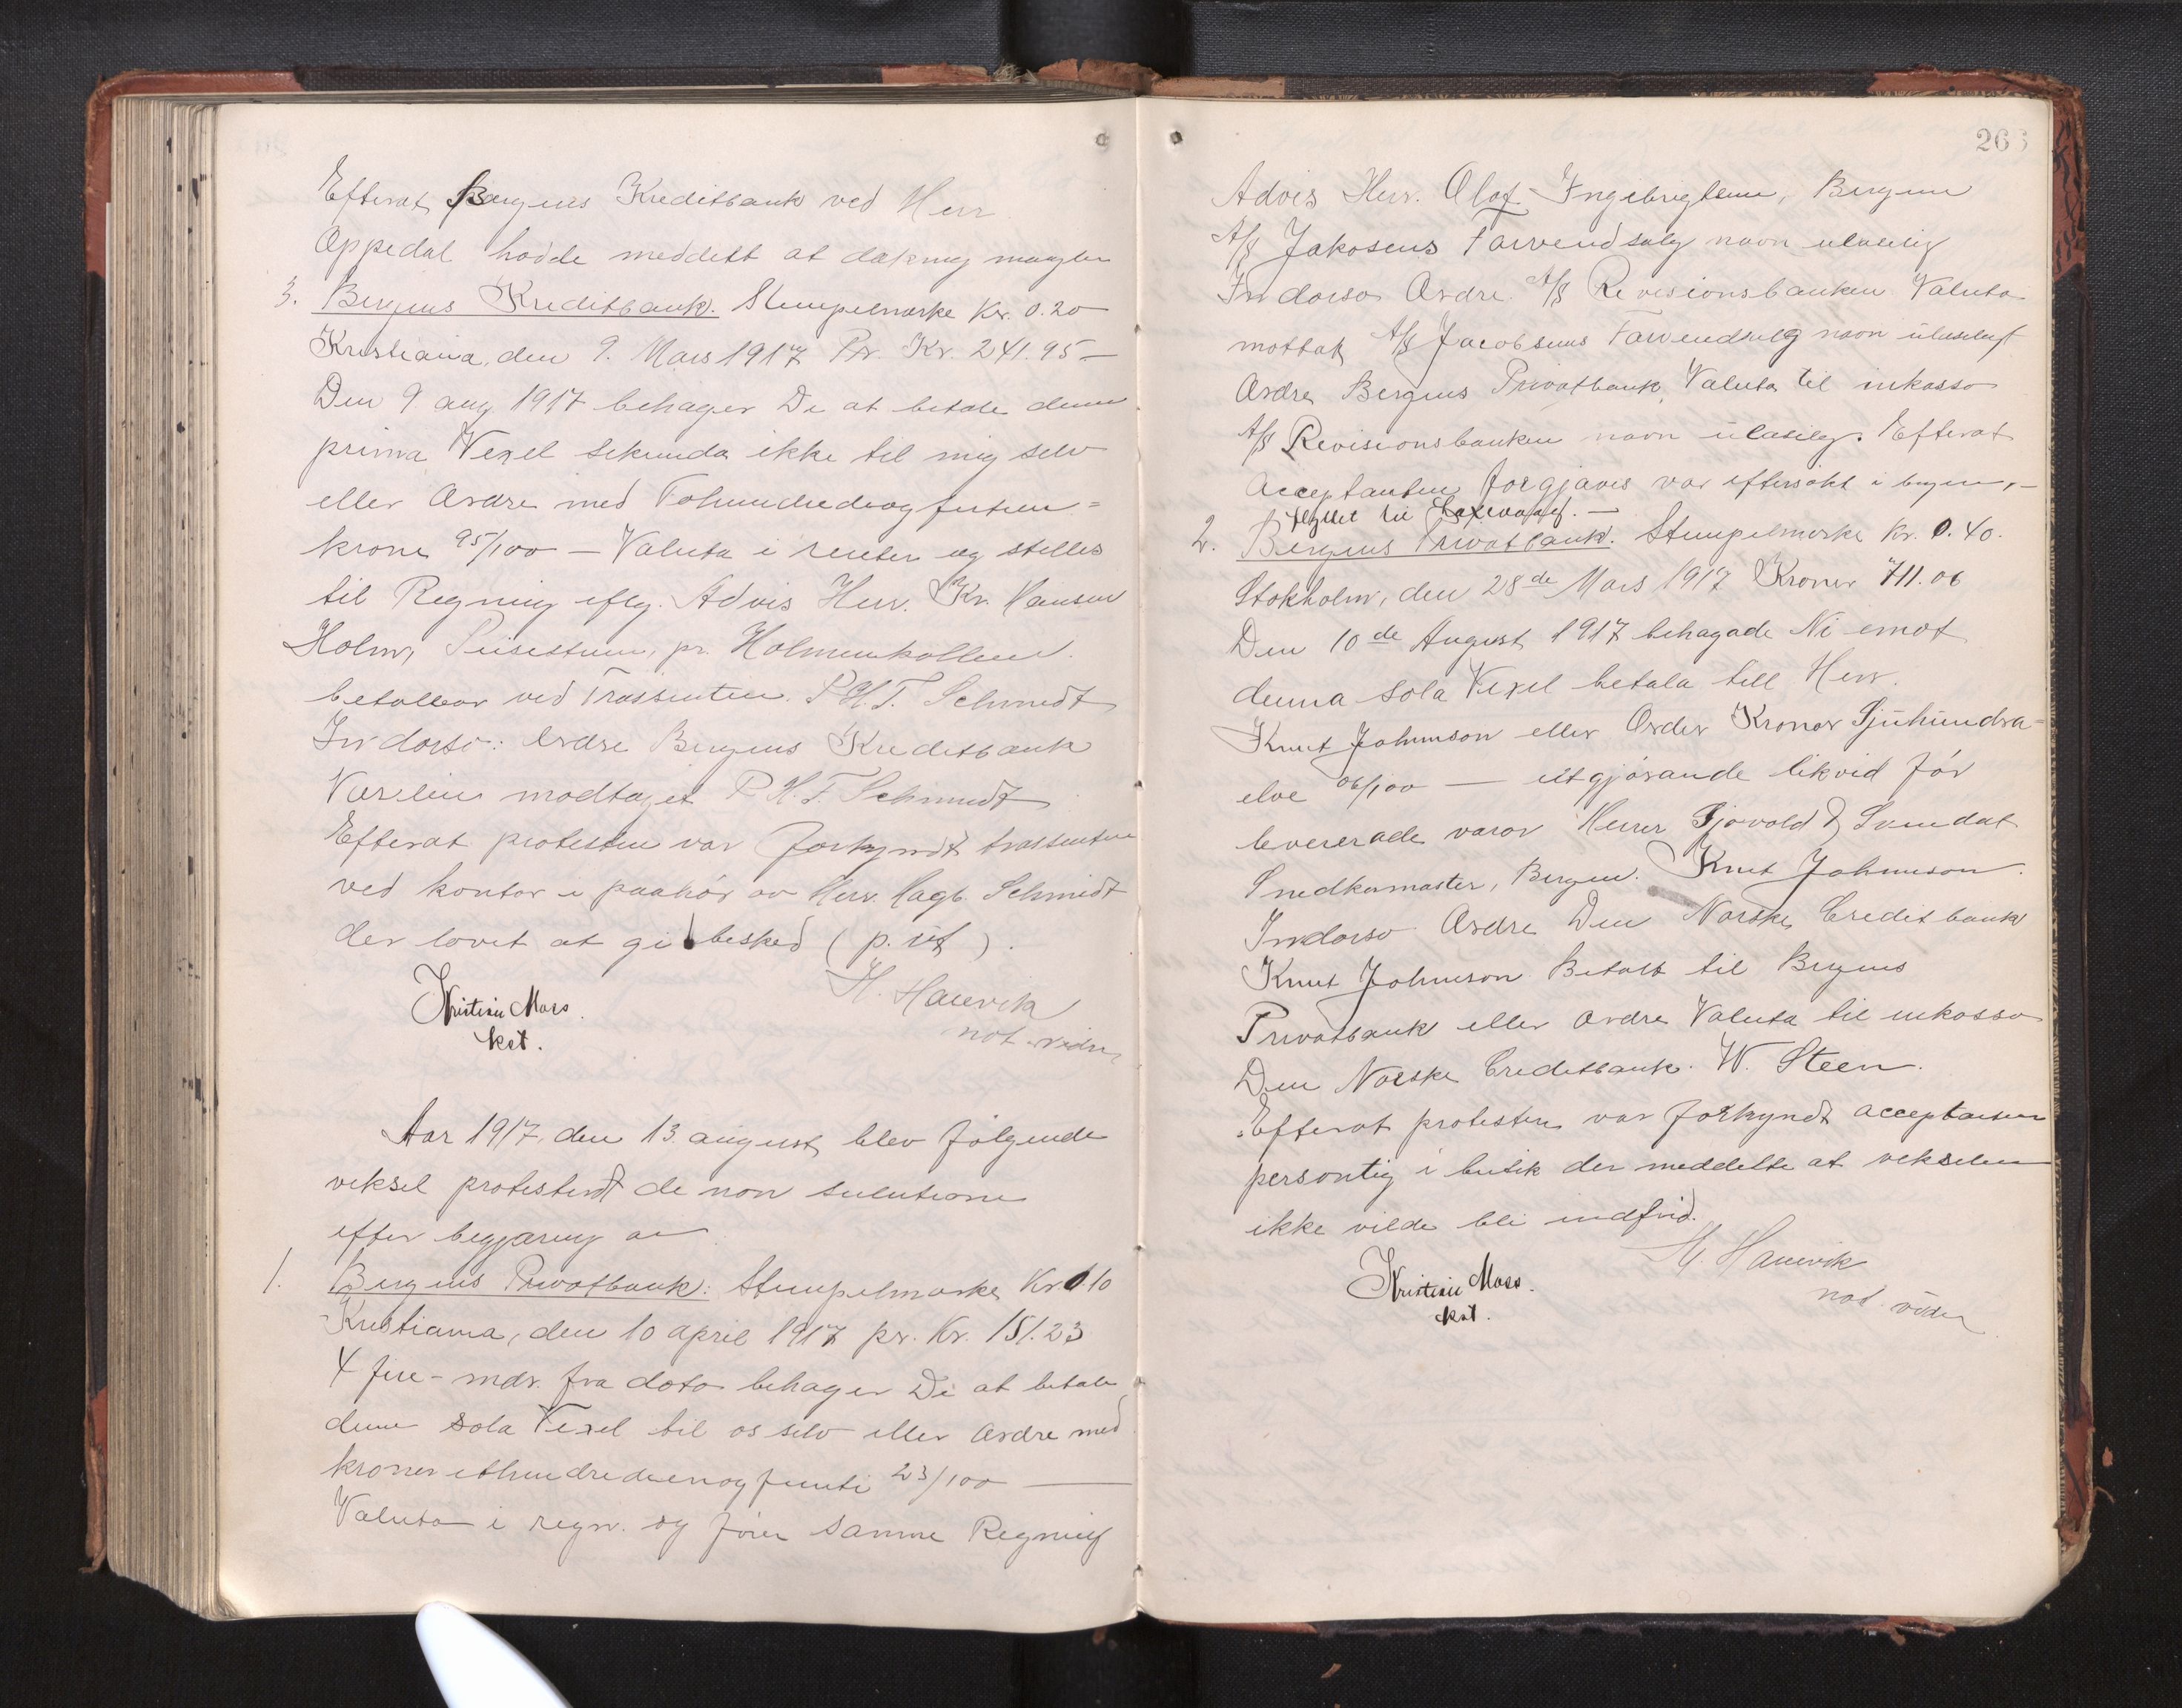 Efterat Bergens Kreditbank ved Herr
Oppedal hadde meddelt at dækning mangler
3. Bergens Kreditbank. Stempelmerke Kr. 0.20
Kristiania, den 9. Mars 1917 Pr. Kr. 241.95 —
Den 9 aug 1917 behager De at betale denne
prima Vexel sekunda ikke til mig selv
eller Ordre med Tohundredeogfirtien=
krone 95/100 — Valuta i renter og stilles
til Regning iflg. Advis Herr. Kr. Hansen
Holm, pr. Holmenkollen.
betalbar ved Trassenten. P.H.T. Schmidt
Indorso: Ordre Bergens Kreditbank
Værdien modtaget P.H.T. Schmidt
Efterat protesten var forkyndt trassenten
ved kontor i paahör av Herr. Hagb. Schmidt
der lovet at gi besked (p. út).
H. Hauvik
not. vidne
Kristian Mars.
kst.
Aar 1917, den 13. august blev følgende
veksel protestert de non solutione
efter begjæring av
1. Bergens Privatbank: Stempelmerke Kr 0.10
Kristiania, den 10 april 1917 pr. Kr. 151.23
4 fire - mdr. fra dato behager De at betale
denne Sola Vexel til os selv eller Ordre med
kroner ethundredeenogfemti 23/100 —
Valuta i regn. og föres samme Regning
266
Advis Herr. Olaf Ingebrigtsen, Bergen
A/S Jakosens Farvendsalg navn ulæselig
Indorso Ordre A/S Revisionsbanken Valuta
mottat A/S Jacobsens Farvendsalg navn úlæseligt
Ordre Bergens Privatbank, Valuta til inkasso
A/S Revisionsbanken navn úlæselig. Efterat
Acceptanten forgjæves var eftersökt i byen, —
flyttet til Laxevaag. —
2. Bergens Privatbank. Stempelmerke Kr. 0.40.
Stokholm, den 28de Mars 1917 Kroner 711.06
Den 10de August 1917 behagade Ni emot
denna Sola Vexel betala till Herr.
Knut Johnnson eller Order Kronor Sjúhúndra=
elve 06/100 — útgjörande likvid för
levererade varor Herrer Gjovold & Svendal
Snedkermaster, Bergen. Knut Johnnson.
Indorso Ordre Den Norske Creditbank
Knut Johnnson Betalt til Bergens
Privatbank eller Ordre Valuta til inkasso
Den Norske Creditbank. W. Steen.
Efterat protesten var forkyndt acceptanten
personlig i butik der meddelte at vekselen
ikke vilde bli indfrid.
H. Hauvik
not. vidne
Kristian Mars.
kst.